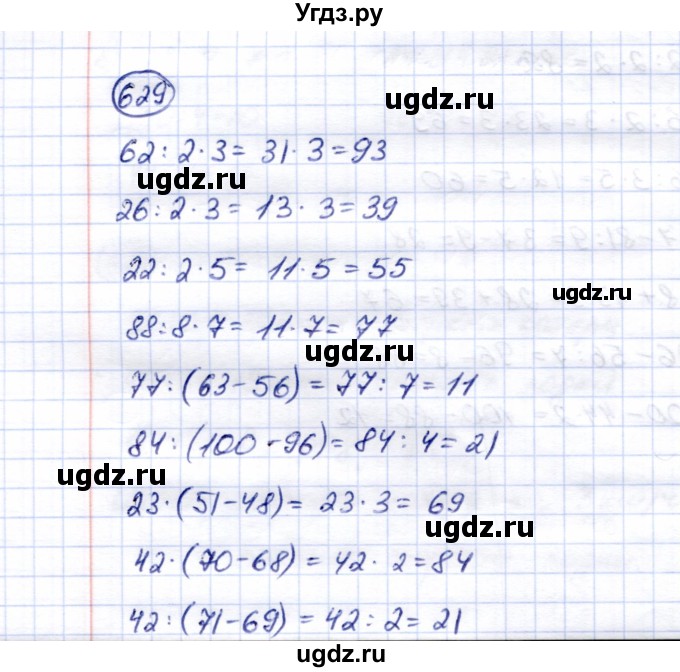 Угдз.ру
629
ugdz.ru
62 : 2 · 3 = 31 · 3 = 93
ugdz.ru
26 : 2 · 3 = 13 · 3 = 39
22 : 2 · 5 = 11 · 5 = 55
ugdz.ru
88 : 8 · 7 = 11 · 7 = 77
ugdz.ru
77 : (63 - 56) = 77 : 7 = 11
84 : (100 - 96) = 84 : 4 = 21
ugdz.ru
23 · (51 - 48) = 23 · 3 = 69
ugdz.ru
42 · (70 - 68) = 42 · 2 = 84
42 : (71 - 69) = 42 : 2 = 21
ugdz.ru